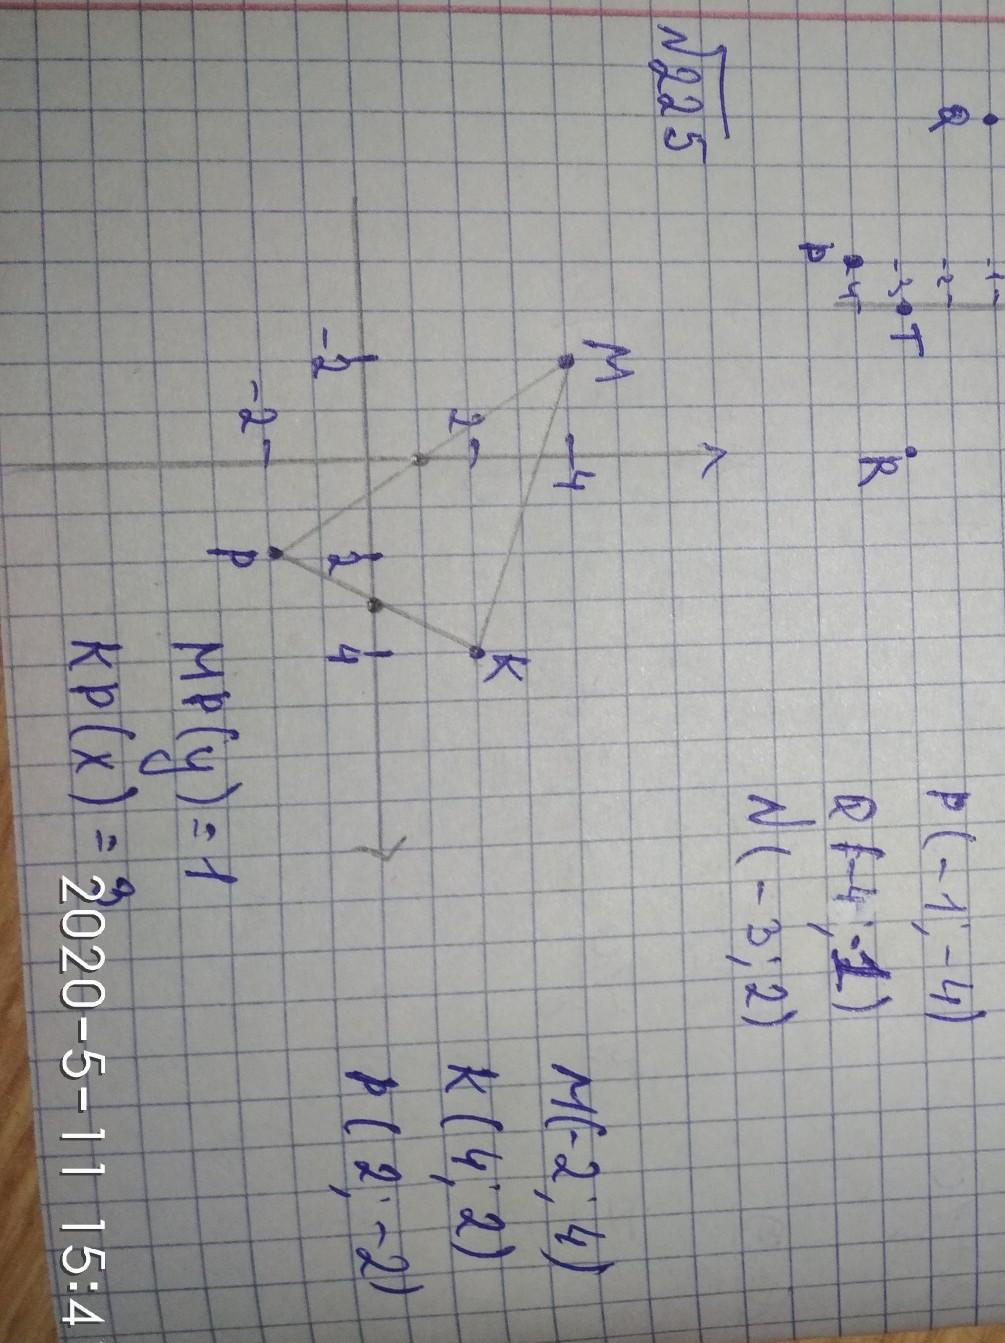 Q
-1
-2
-3
-4
T
P
R
P(-1; -4)
Q(-4; -1)
N(-3; 2)
√225
M
4
2
K
-2
2
4
-2
P
M(-2; 4)
K(4; 2)
P(2; -2)
MP(y) = 1
KP(x) =
2020-5-11 15:4